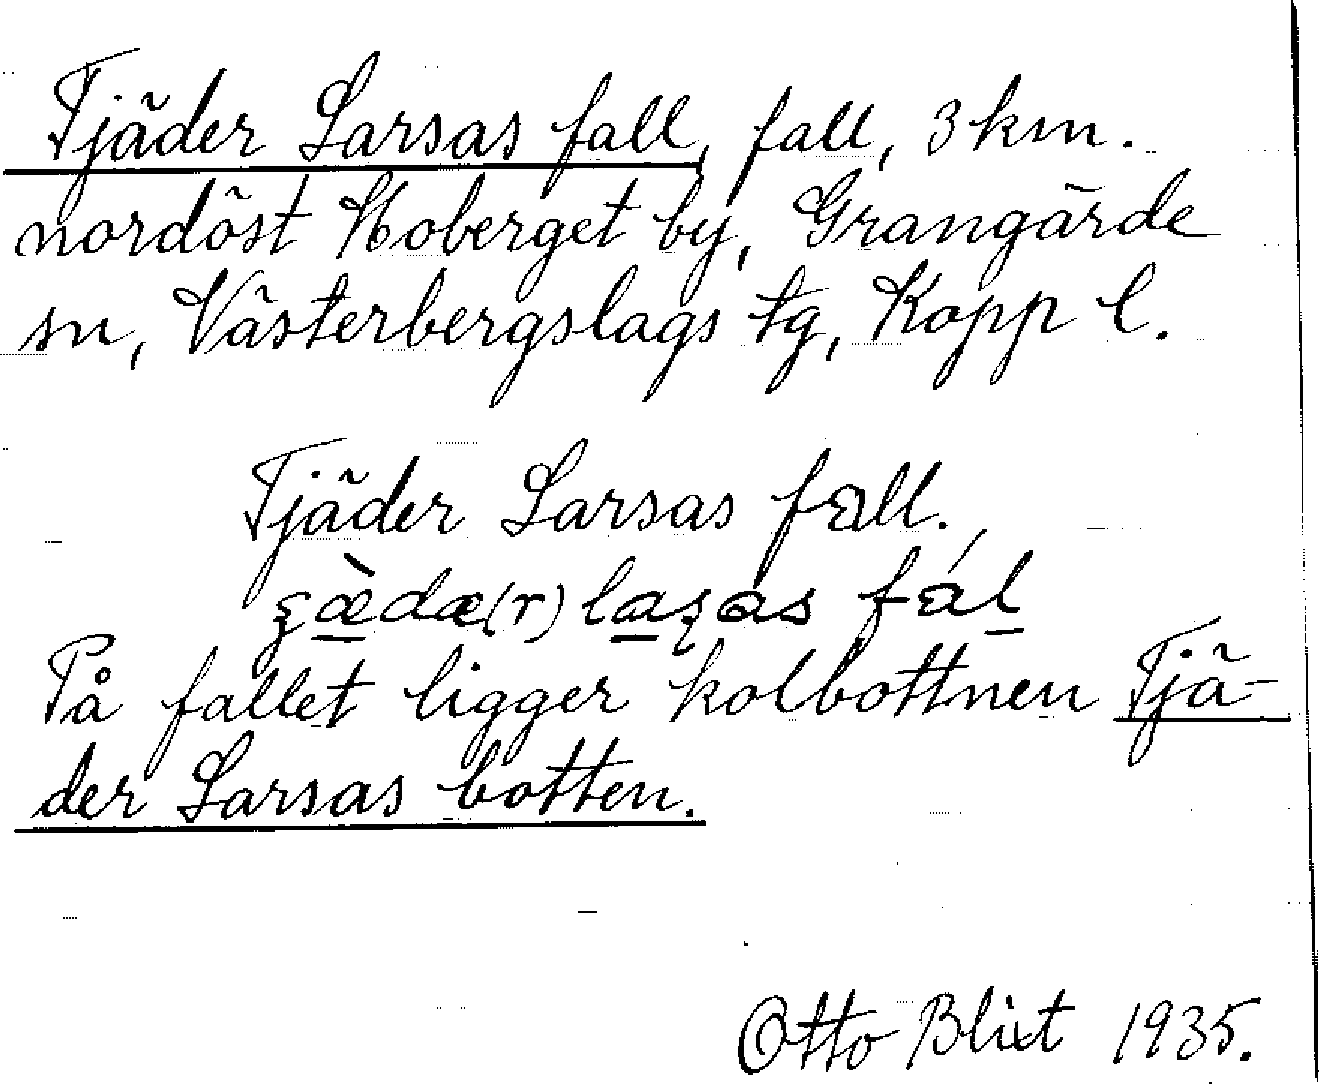 Tjäder Larsas fall, fall, 3 km.
nordöst Hoberget by, Grangärde
sn, Västerbergslags tg, Kopp l.
Tjäder Larsas fall.
ʂæ̀dæ(r) laʂas fál
På fallet ligger kolbottnen Tjä-
der Larsas botten.
Otto Blixt 1935.